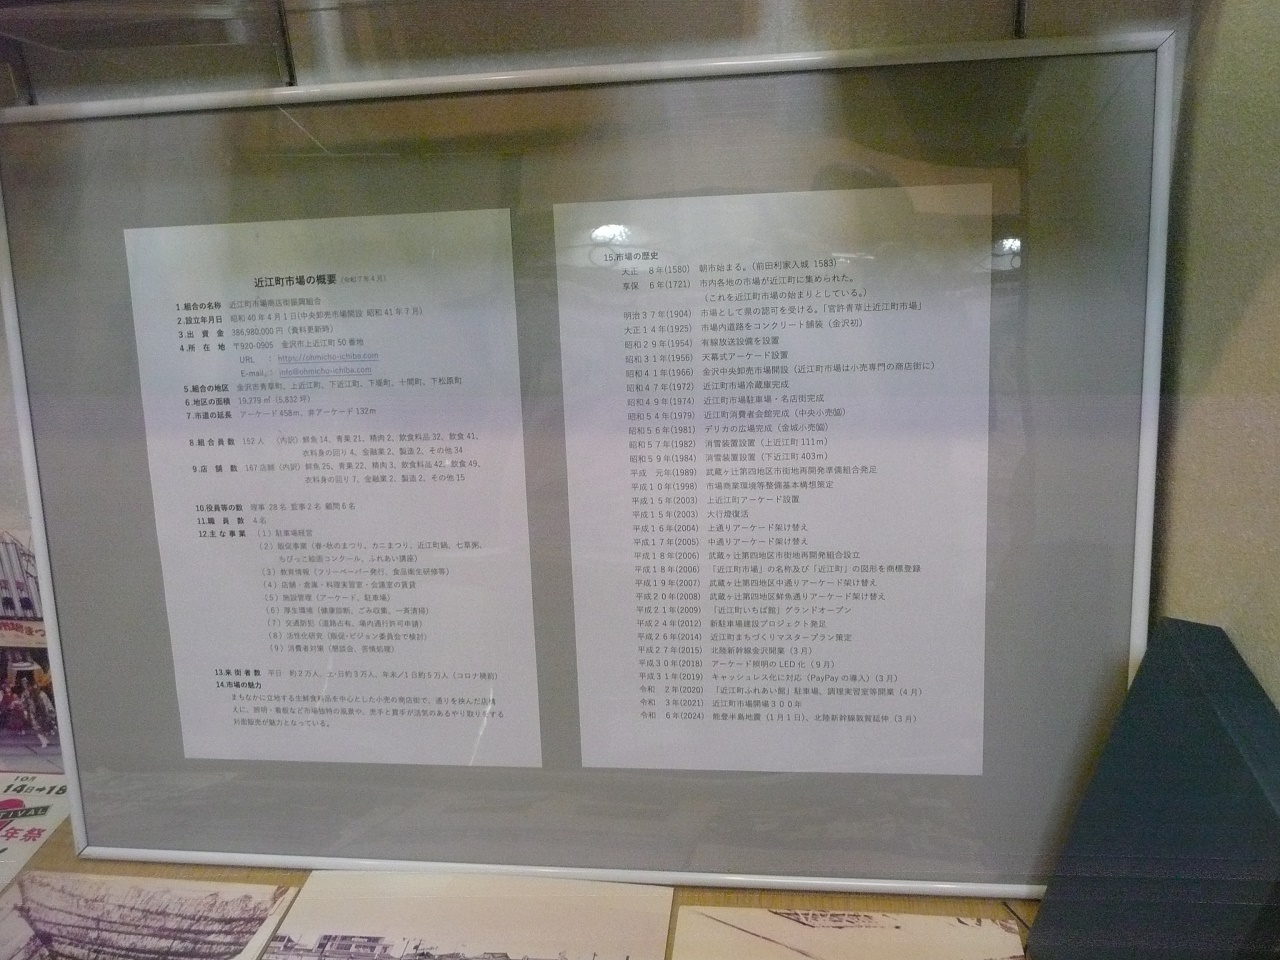 近江町市場の概要 (令和7年4月)
1.組合の名称 近江町市場商店街振興組合
2.設立年月日 昭和40年4月1日(中央卸売市場開設 昭和41年7月)
3.出資金 386,980,000円(資料更新時)
4.所在地 〒920-0905 金沢市上近江町50番地
URL : https://ohmicho-ichiba.com
E-mail : info@ohmicho-ichiba.com
5.組合の地区 金沢市青草町、上近江町、下近江町、下堤町、十間町、下松原町
6.地区の面積 19,279㎡(5,832坪)
7.市道の延長 アーケード458m、非アーケード132m
8.組合員数 152人 (内訳)鮮魚14、青果21、精肉2、飲食料品32、飲食41、
衣料身の回り4、金融業2、製造2、その他34
9.店舗数 167店舗(内訳)鮮魚25、青果22、精肉3、飲食料品42、飲食49、
衣料身の回り7、金融業2、製造2、その他15
10.役員等の数 理事28名 監事2名 顧問6名
11.職員数 4名
12.主な事業 (1)駐車場経営
(2)販促事業(春・秋のまつり、カニまつり、近江町鍋、七草粥、
ちびっこ絵画コンクール、ふれあい講座)
(3)教育情報(フリーペーパー発行、食品衛生研修等)
(4)店舗・倉庫・料理実習室・会議室の賃貸
(5)施設管理(アーケード、駐車場)
(6)厚生環境(健康診断、ごみ収集、一斉清掃)
(7)交通防犯(道路占有、場内通行許可申請)
(8)活性化研究(販促・ビジョン委員会で検討)
(9)消費者対策(懇談会、苦情処理)
13.来街者数 平日 約2万人、土・日約3万人、年末/1日約5万人(コロナ禍前)
14.市場の魅力
まちなかに立地する生鮮食料品を中心とした小売の商店街で、通りを挟んだ店構
えに、照明・看板など市場独特の風景や、売手と買手が活気のあるやり取りをする
対面販売が魅力となっている。
15.市場の歴史
天正 8年(1580) 朝市始まる。(前田利家入城 1583)
享保 6年(1721) 市内各地の市場が近江町に集められた。
(これを近江町市場の始まりとしている。)
明治37年(1904) 市場として県の認可を受ける。「官許青草辻近江町市場」
大正14年(1925) 市場内道路をコンクリート舗装(金沢初)
昭和29年(1954) 有線放送設備を設置
昭和31年(1956) 天幕式アーケード設置
昭和41年(1966) 金沢中央卸売市場開設(近江町市場は小売専門の商店街に)
昭和47年(1972) 近江町市場冷蔵庫完成
昭和49年(1974) 近江町市場駐車場・名店街完成
昭和54年(1979) 近江町消費者会館完成(中央小売㈿)
昭和56年(1981) デリカの広場完成(金城小売㈿)
昭和57年(1982) 消雪装置設置(上近江町111m)
昭和59年(1984) 消雪装置設置(下近江町403m)
平成 元年(1989) 武蔵ヶ辻第四地区市街地再開発準備組合発足
平成10年(1998) 市場商業環境等整備基本構想策定
平成15年(2003) 上近江町アーケード設置
平成15年(2003) 大行燈復活
平成16年(2004) 上通りアーケード架け替え
平成17年(2005) 中通りアーケード架け替え
平成18年(2006) 武蔵ヶ辻第四地区市街地再開発組合設立
平成18年(2006) 「近江町市場」の名称及び「近江町」の図形を商標登録
平成19年(2007) 武蔵ヶ辻第四地区中通りアーケード架け替え
平成20年(2008) 武蔵ヶ辻第四地区鮮魚通りアーケード架け替え
平成21年(2009) 「近江町いちば館」グランドオープン
平成24年(2012) 新駐車場建設プロジェクト発足
平成26年(2014) 近江町まちづくりマスタープラン策定
平成27年(2015) 北陸新幹線金沢開業(3月)
平成30年(2018) アーケード照明のLED化(9月)
平成31年(2019) キャッシュレス化に対応(PayPayの導入)(3月)
令和 2年(2020) 「近江町ふれあい館」駐車場、調理実習室等開業(4月)
令和 3年(2021) 近江町市場開場300年
令和 6年(2024) 能登半島地震(1月1日)、北陸新幹線敦賀延伸(3月)
10月
14日→18
TIVAL
年祭